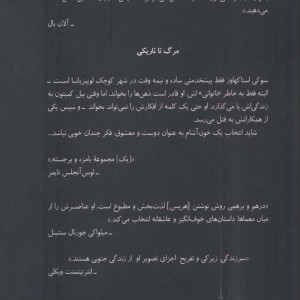 می‌دهید.»
ـ آلان بال
مرگ تا تاریکی
سوکی استاکهاوز فقط پیشخدمتی ساده و نیمه وقت در شهر کوچک لوییزیانا است ـ
البته فقط به خاطر «ناتوانی» اش. او قادر است ذهن‌ها را بخواند. اما وقتی بیل کمپتون به
زندگی‌اش پا می‌گذارد. او حتی یک کلمه از افکارش را نمی‌تواند بخواند ـ و سپس یکی
از همکارانش به قتل می‌رسد.
شاید انتخاب یک خون‌آشام به عنوان دوست و معشوق، فکر چندان خوبی نباشد..
«[یک] مجموعهٔ بامزه و برجسته.»
ـ لوس‌آنجلس تایمز
«درهم و برهمی روش نوشتن [هریس] لذت‌بخش و مطبوع است. او عناصرش را از
میان معماها، داستان‌های خوف‌انگیز و عاشقانه انتخاب می‌کند.»
ـ میلواکی جورنال سنتینل
«سرزندگی، زیرکی و تفریح اجزای تصویر او از زندگی جنوبی هستند.»
ـ انترتینمنت ویکلی